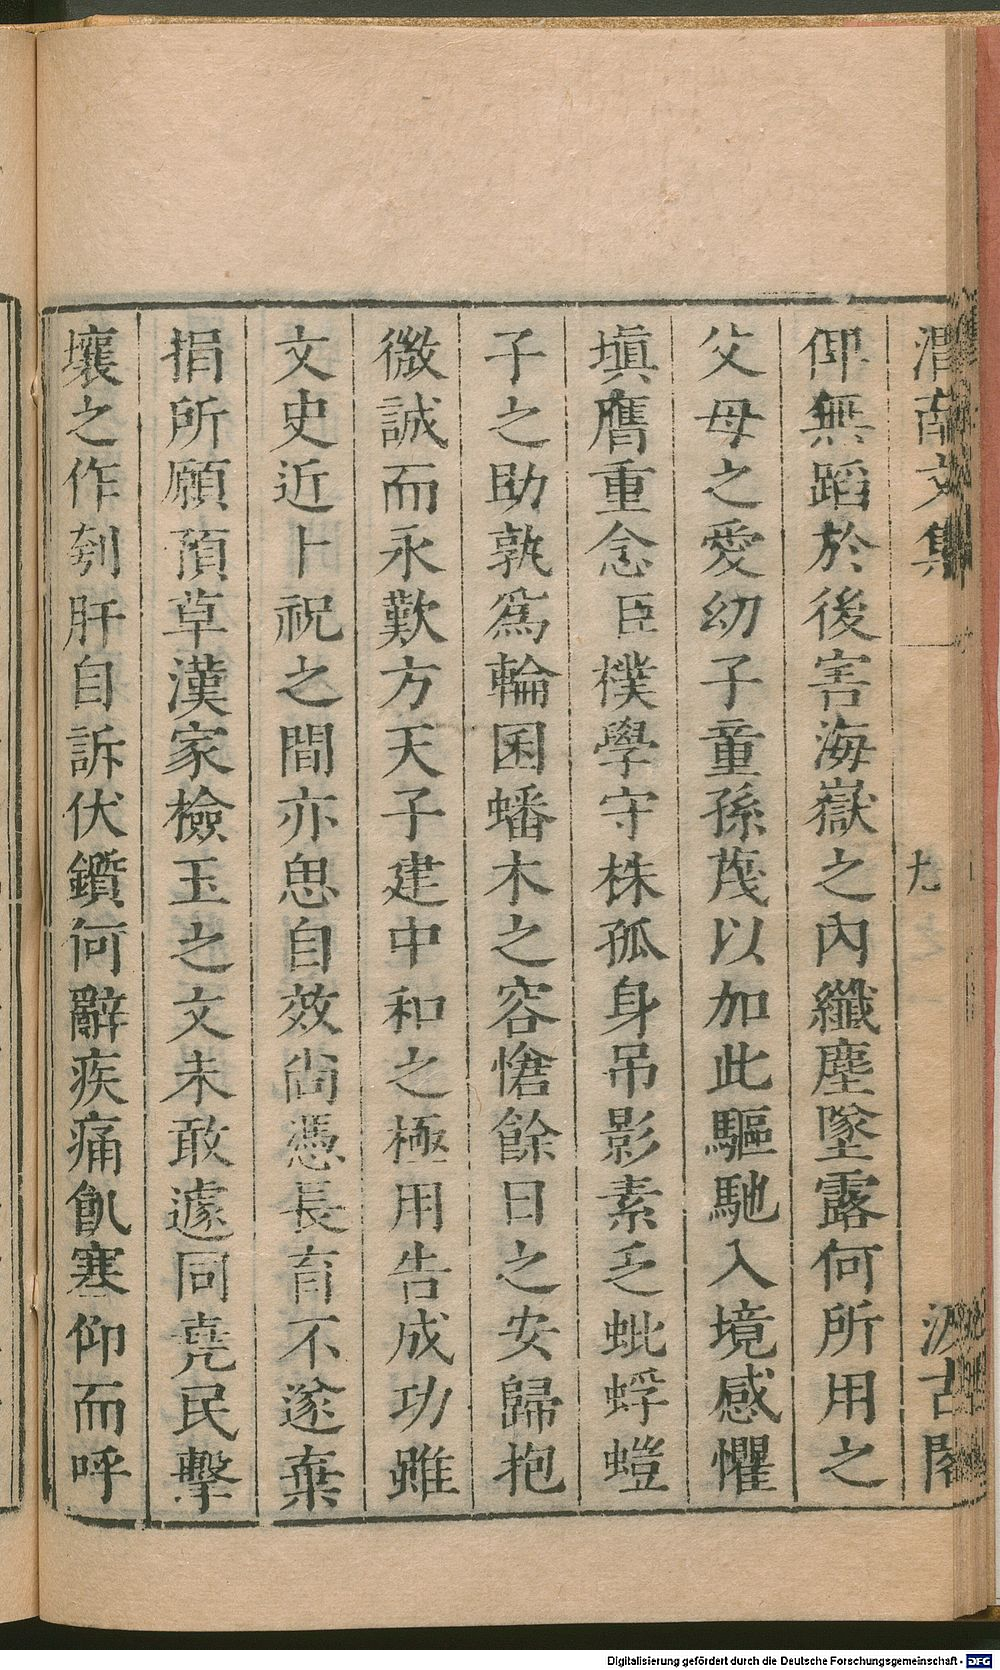 渭南文集 九 汲古閣
仰無蹈於後害海嶽之內纖塵墜露何所用之
父母之愛幼子童孫蔑以加此驅馳入境感懼
塡膺重念臣樸學守株孤身吊影素乏蚍蜉螘
子之助孰爲輪囷蟠木之容愴餘日之安歸抱
微誠而永歎方天子建中和之極用告成功雖
文史近卜祝之間亦思自效尙憑長育不遂棄
捐所願預草漢家檢玉之文未敢遽同堯民擊
壤之作刳肝自訴伏鑕何辭疾痛飢寒仰而呼
Digitalisierung gefördert durch die Deutsche Forschungsgemeinschaft - DFG